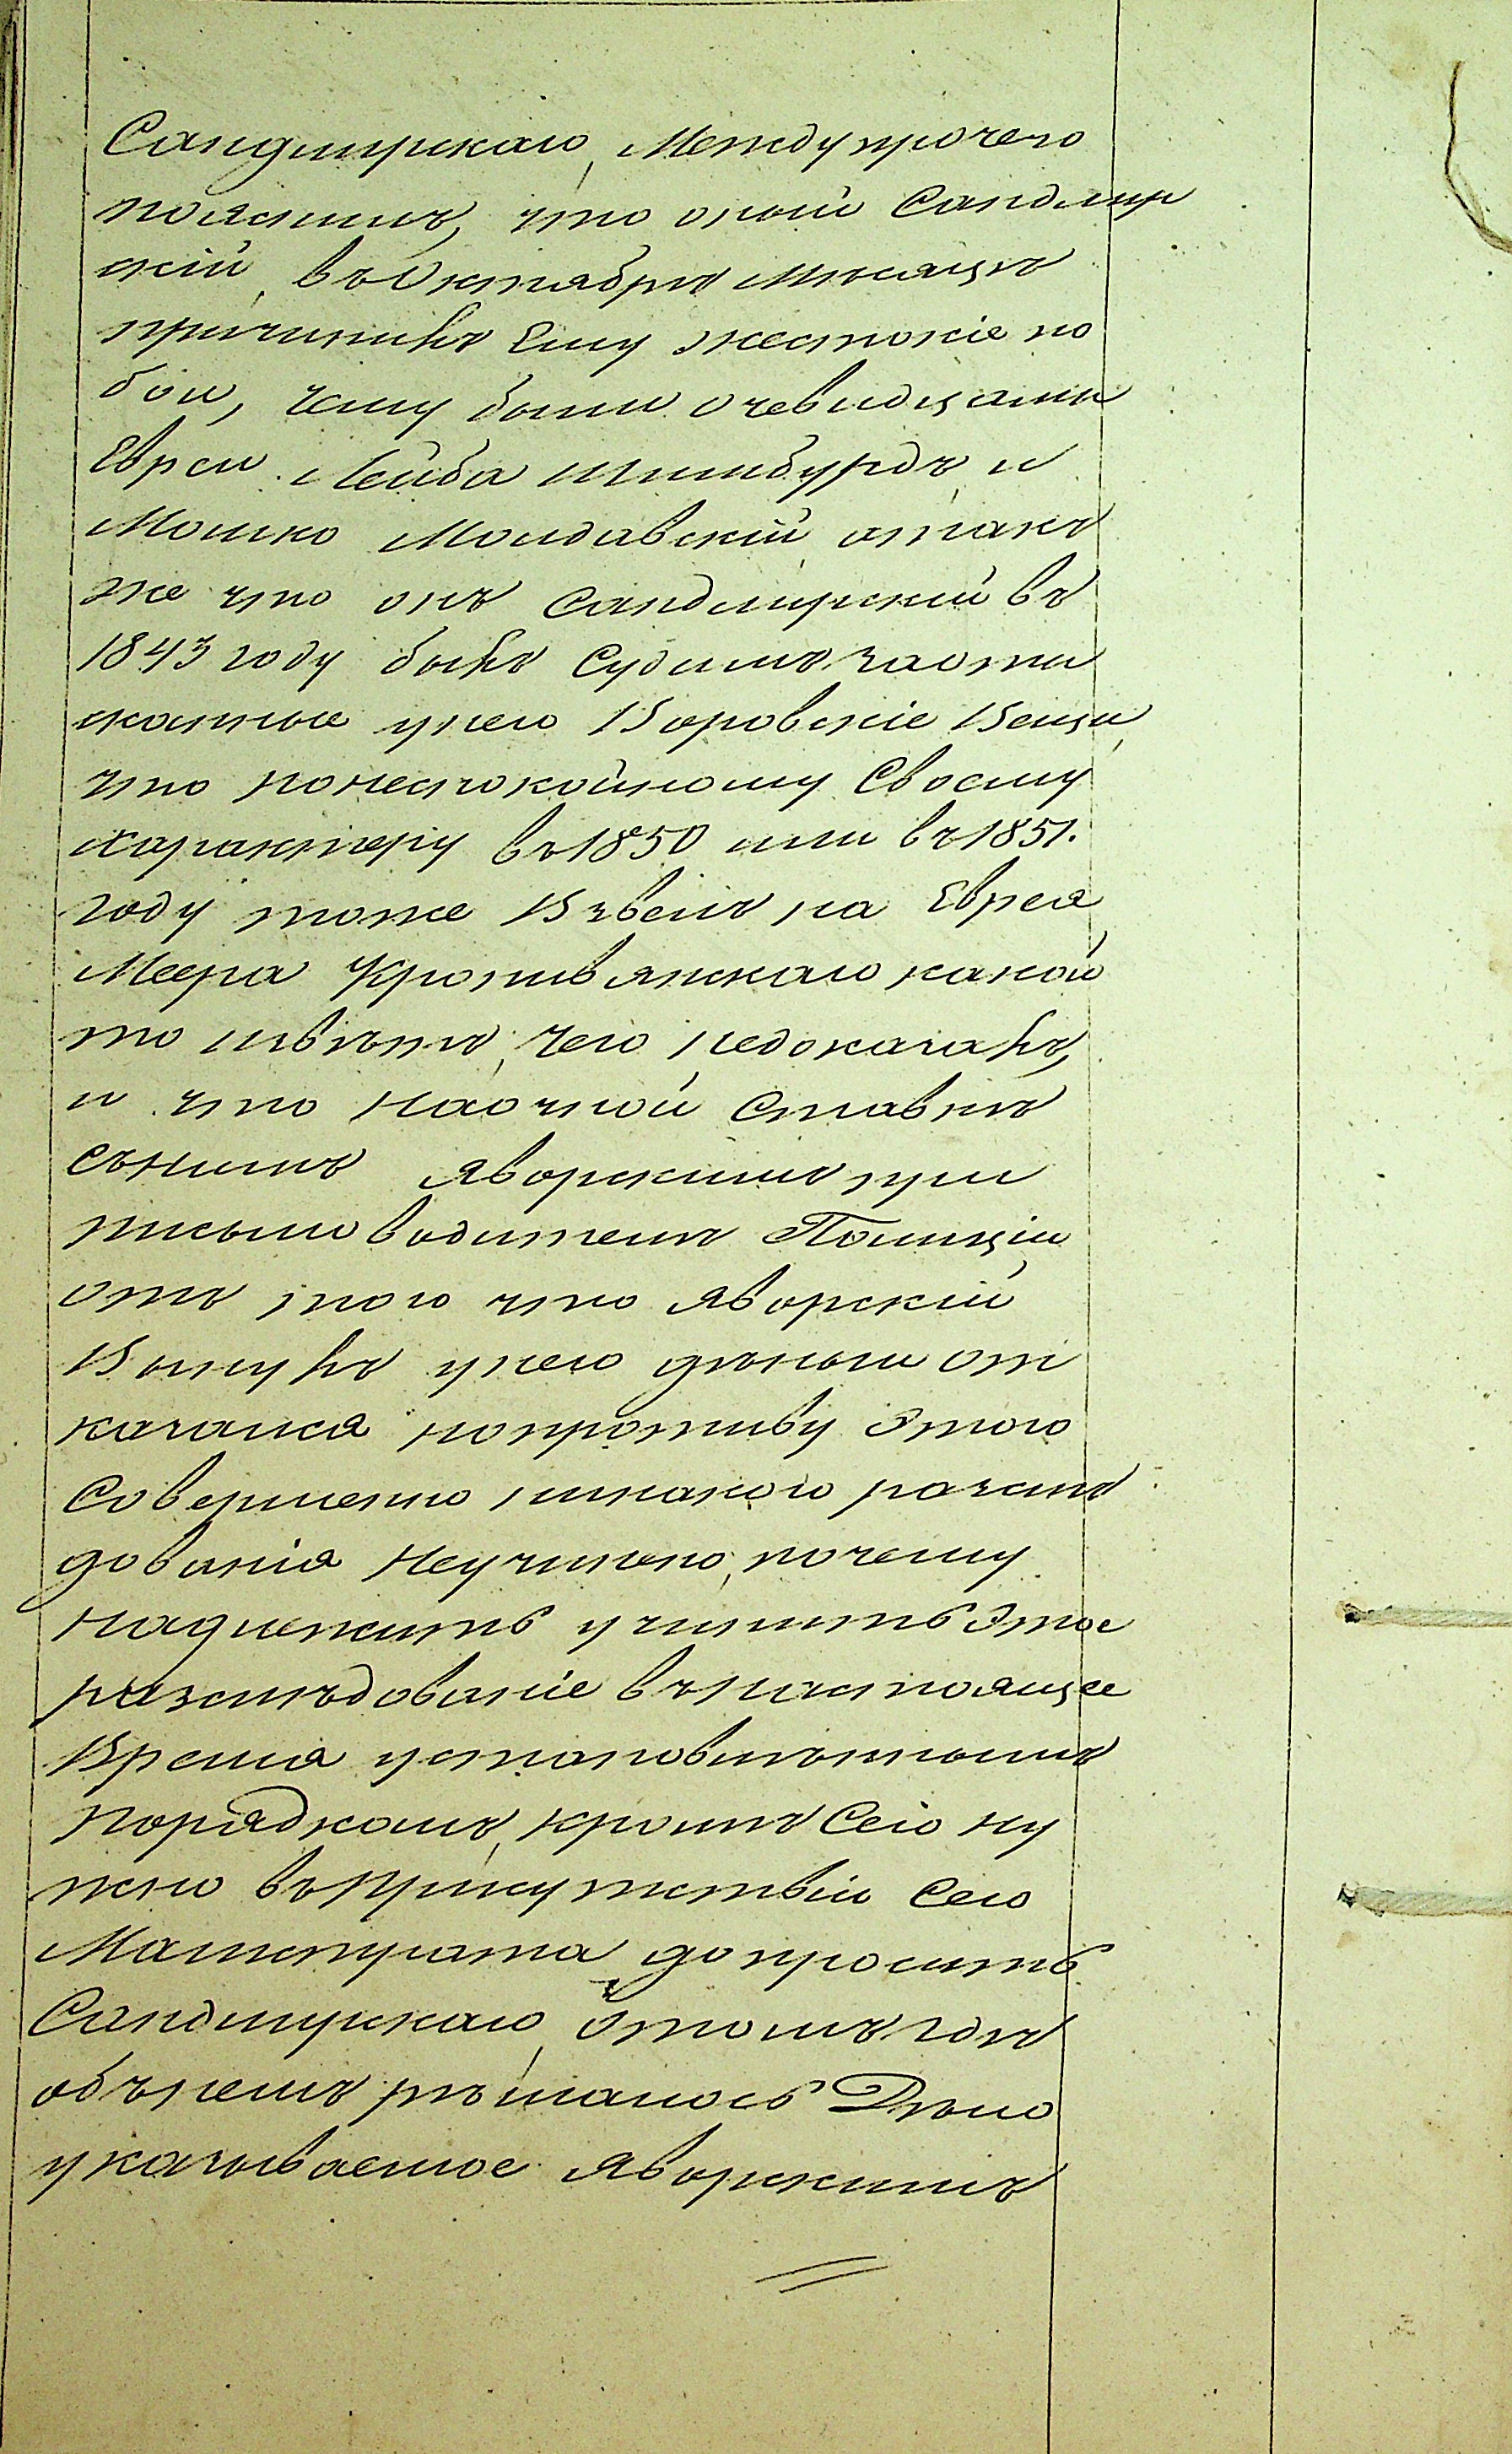 Сандмирскаго, Между прочего
поясшилъ, что оный Сандмир
скій, въ Октябрѣ Мѣсяцѣ
причинилъ Ему жестокіе по
бои, чему были очевидцами
Евреи Лейба Шимбурдъ и
Мошко Молдавскій, а так
же что онъ Сандмирскій въ
1843 году былъ Судимъ за оты
сканные у него Воровскіе Вещи,
что по неспокойному Своему
характеру въ 1850 или въ 1851.
году тоже Взвелъ на Еврея
Меера Кропивянскаго какой
то извѣтъ, чего недоказалъ,
и что на очной Ставкѣ
съ нимъ Яворскимъ при
письмоводителѣ Полиціи
отъ того что Яворскій
Вотнулъ у него деньги от
казался но противу Этого
Совершенно никакого разслѣ
дованія Неучинено, почему
надлежитъ учинить Этое
разслѣдованіе въ настоящее
Время установленнымъ
порядкомъ, кромѣ Сего ну
жно въ Присутствіи Сего
Магистрата допросить
Сандмирскаго, Отомъ гдѣ
объ немъ рѣшалось Дѣло
указываемое Яворскимъ